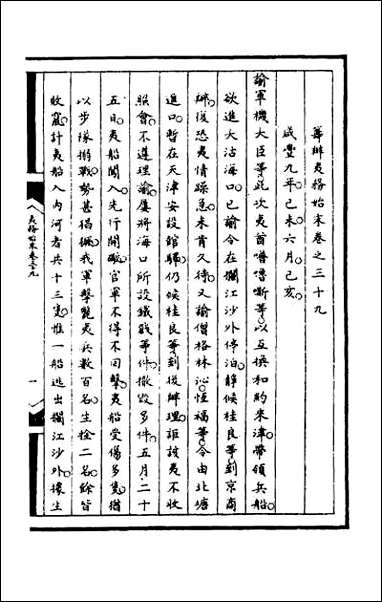 籌辦夷務始末卷之三十九
咸豐九年己未六月己亥
諭軍機大臣等此次夷酋嚕嘶等以互換和約來津帶領兵船
欲進大沽海口已諭令在攔江沙外停泊靜候桂良等到京商
辦後恐夷情躁急未肯久待又諭僧格林沁恆福等令由北塘
進口暫在天津安設館驛仍候桂良等到後辦理詎該夷不收
照會不遵理諭屢將海口所設鐵戧等件撤毀多件五月二十
五日夷船闖入先行開礮官軍不得不回擊夷船受傷多隻猶
以步隊搦戰勢甚猖獗我軍擊斃夷兵數百名生擒二名餘皆
收竄計夷船入內河者共十三隻惟一船逃出攔江沙外據生
夷務始末卷三九
一